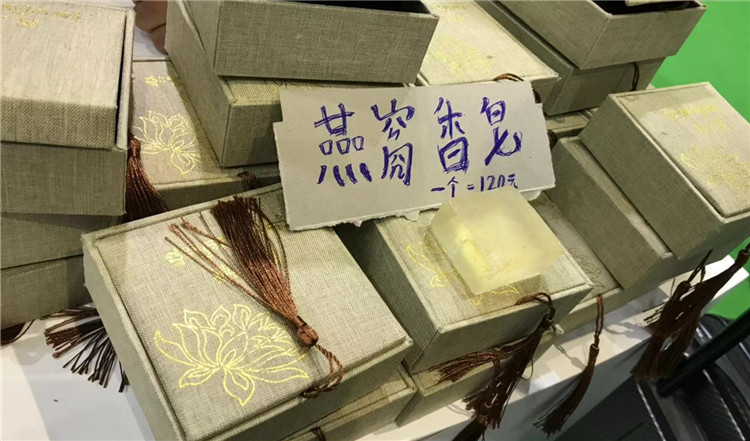 燕窩香皂
一个=120元